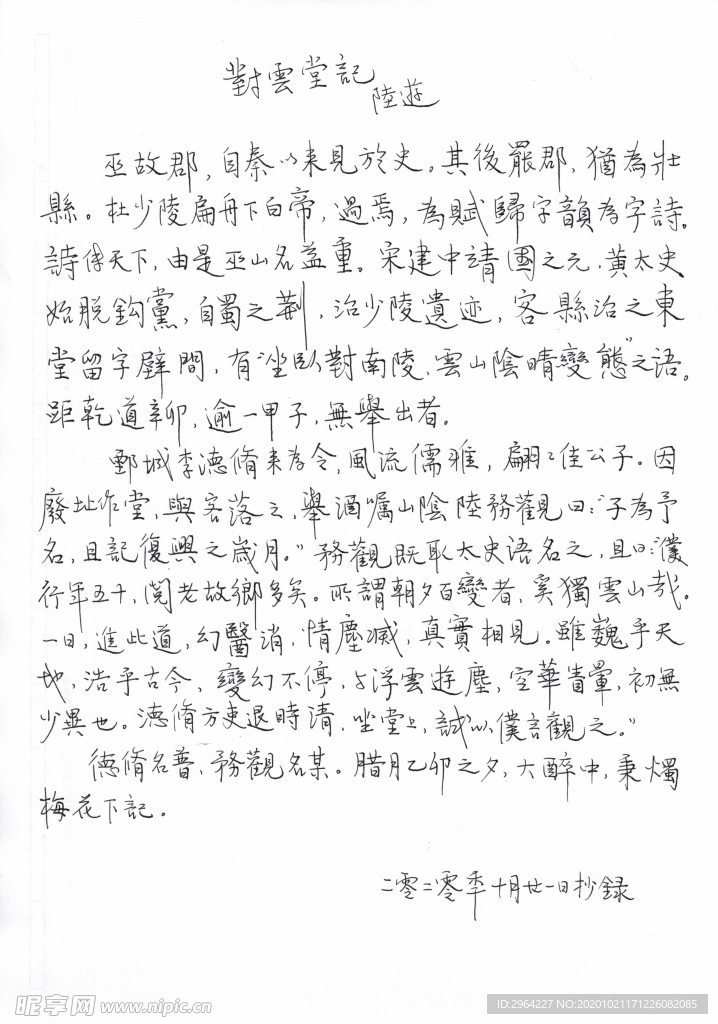 對雲堂記
陸遊
巫故郡,自秦以来見於史。其後罷郡,猶為壯
縣。杜少陵扁舟下白帝,過焉,為賦歸字韻為字詩。
詩傳天下,由是巫山名益重。宋建中靖國之元,黄太史
始脱鈎黨,自蜀之荆,訪少陵遺迹,客縣治之東
堂留字壁間,有“坐卧對南陵,雲山陰晴變態”之語。
距乾道辛卯,逾一甲子,無舉出者。
鄄城李德脩来為令,風流儒雅,翩翩佳公子。因
廢址作堂,與客落之,舉酒嘱山陰陸務觀曰:“子為予
名,且記復興之歲月。”務觀既取太史语名之,且曰:“僕
行年五十,閲老故鄉多矣。所謂朝夕百變者,奚獨雲山哉。
一日,進此道,幻翳消,情塵滅,真實相見。雖巍乎天
地,浩乎古今,變幻不停,与浮雲遊塵,空華眚暈,初無
少異也。德脩方吏退時清,坐堂上,誠以僕言觀之。”
德脩名普,務觀名某。腊月乙卯之夕,大醉中,秉燭
梅花下記。
二零二零年十月廿一日抄録
昵享网 www.nipic.cn
ID:2964227 NO:20201021171226082085